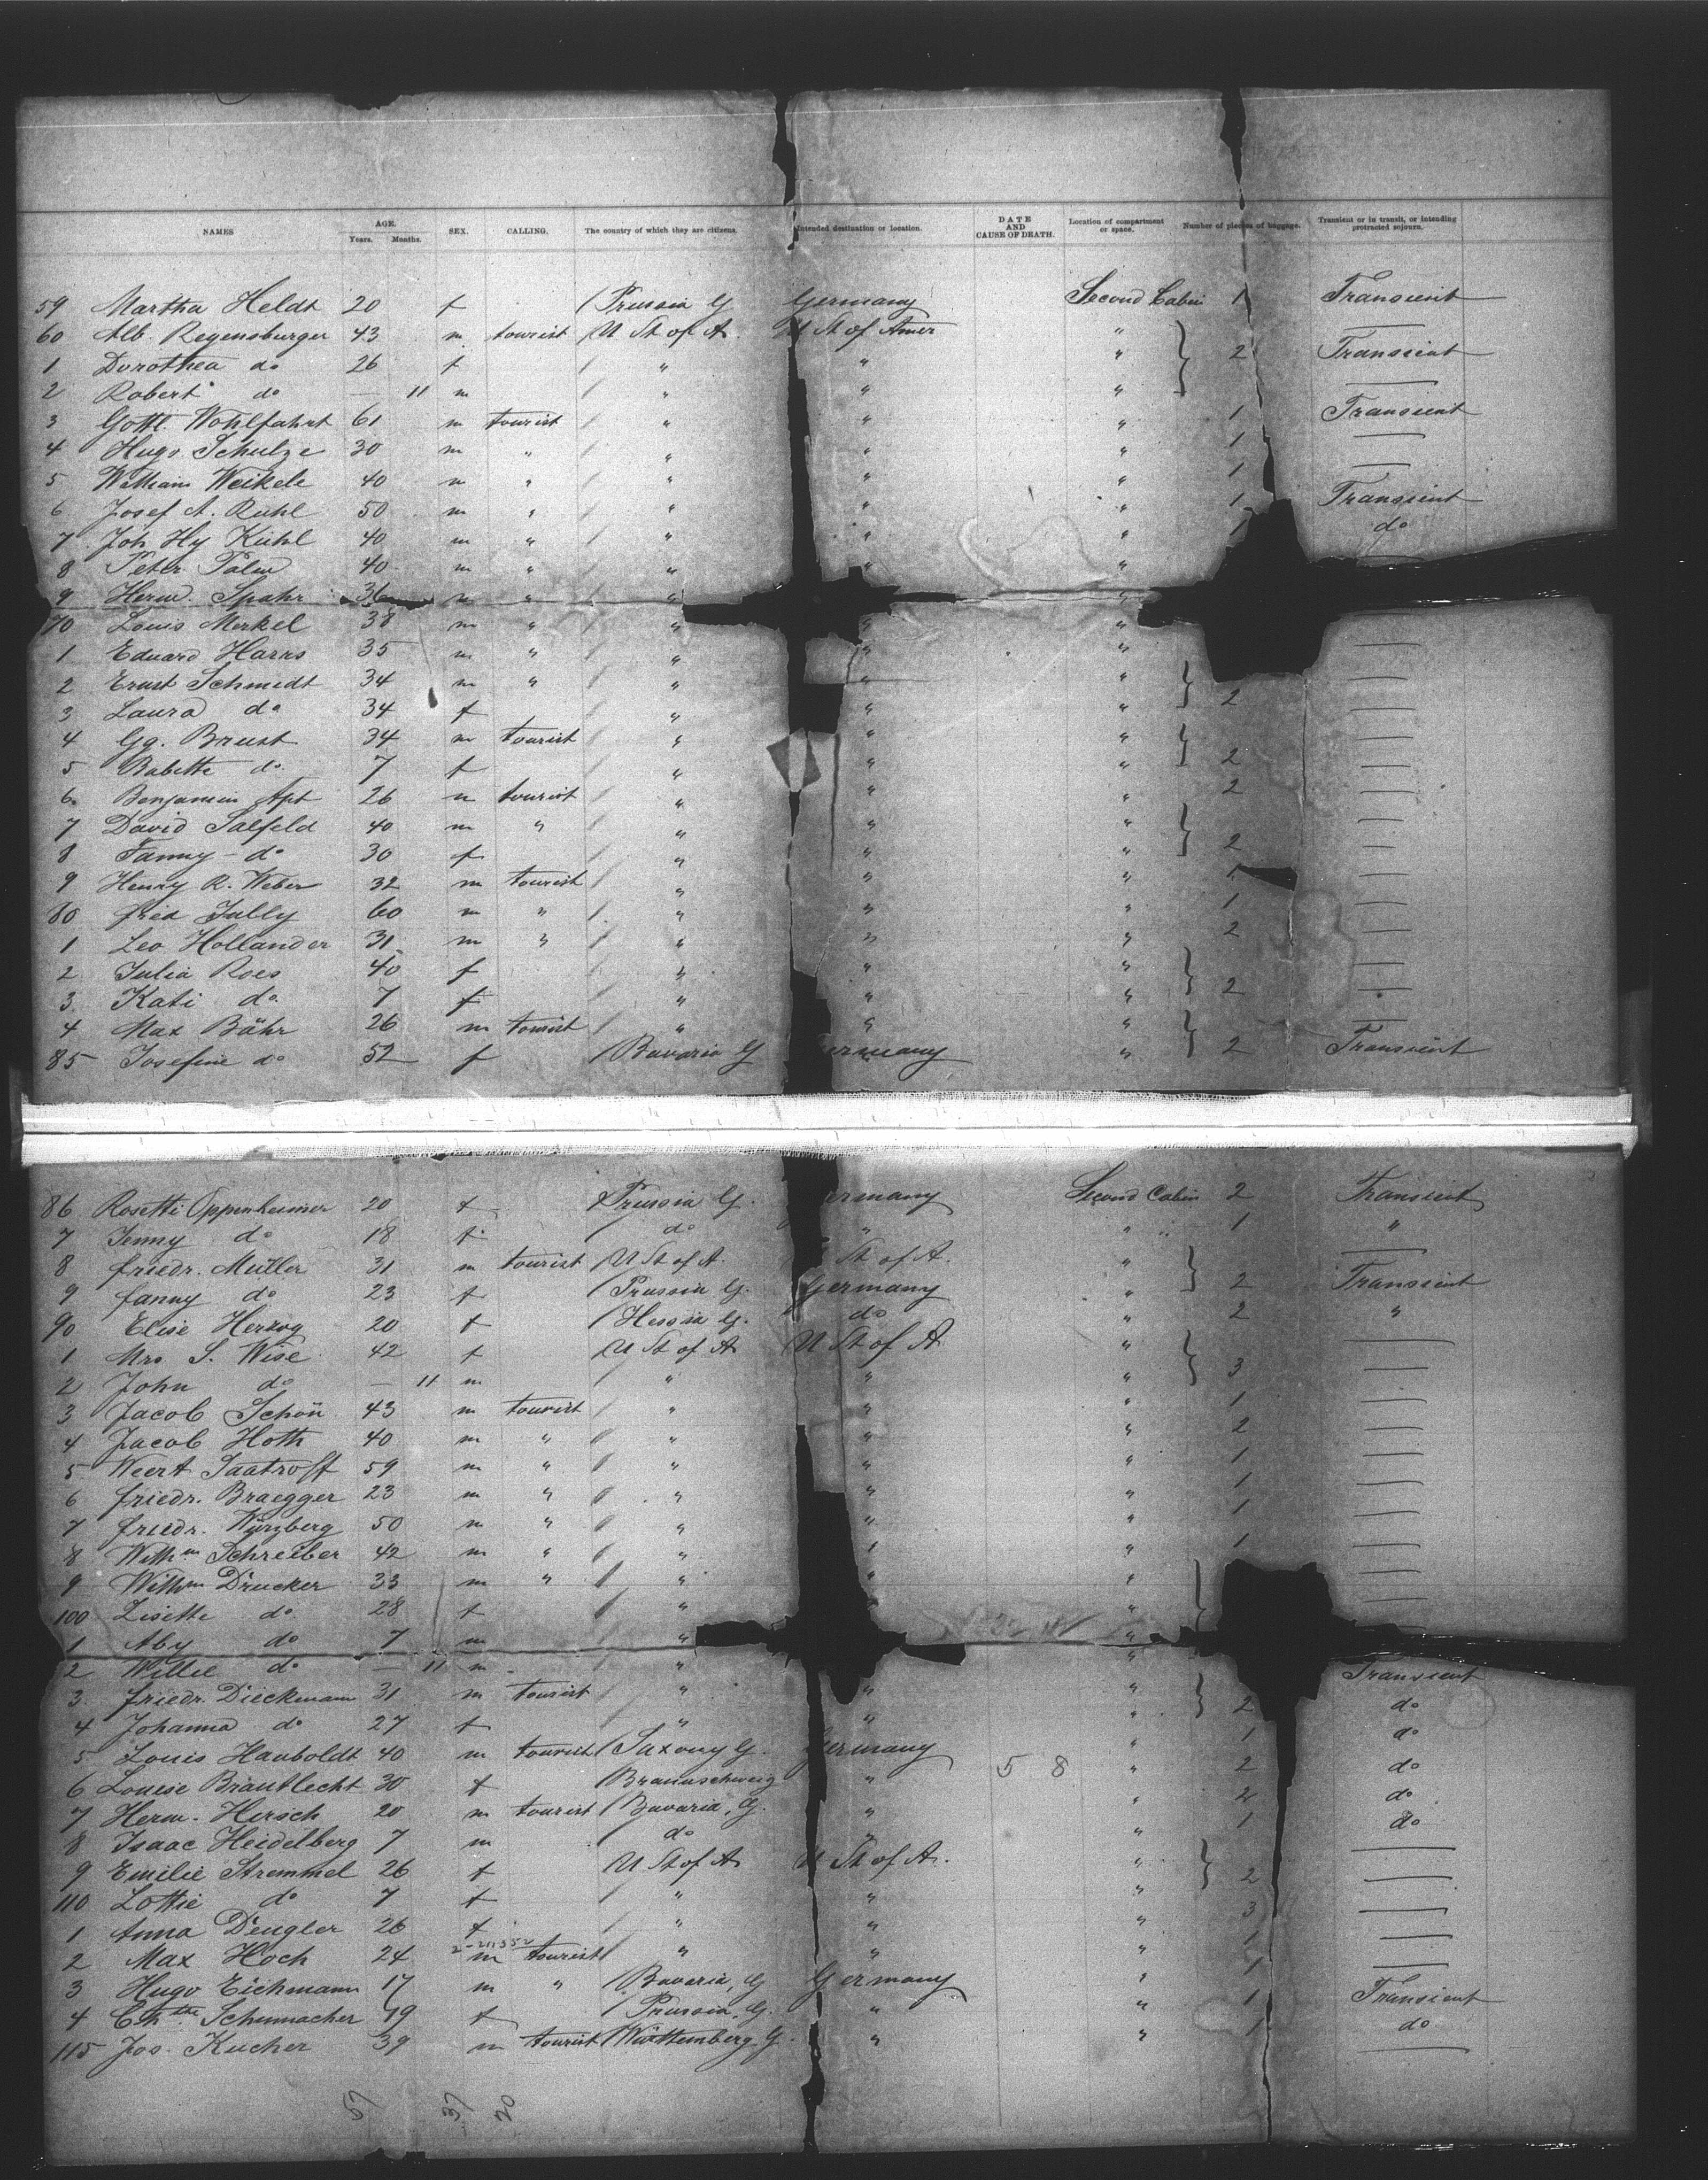 NAMES AGE. Years. Months. SEX. CALLING. The country of which they are citizens. Intended destination or location. DATE AND CAUSE OF DEATH. Location of compartment or space. Number of pieces of baggage. Transient or in transit, or intending protracted sojourn.
59 Martha Heldt 20 f / Prussia G Germany Second Cabin 1 Transient
60 Alb. Regensburger 43 m tourist / U St of A. U St of Amer " —
1 Dorothea do 26 f / " " " } 2 Transient
2 Robert do — 11 m / " " " —
3 Gottl. Wohlfahrt 61 m tourist / " " " 1 Transient
4 Hugo Schulze 30 m " / " " " 1 —
5 William Weikele 40 m " / " " " 1 —
6 Josef A. Ruhl 50 m " / " " " 1 Transient
7 Joh Hy Kühl 40 m " / " " " 1 do
8 Peter Palm 40 m " / " " " —
9 Herm. Spahr 36 m " / " "
70 Louis Merkel 38 m " / " " "
1 Eduard Harrs 35 m " / " " " —
2 Ernst Schmidt 34 m " / " " " —
3 Laura do 34 f / " " " } 2 —
4 Gg. Brust 34 m tourist / " " " —
5 Babette do 7 f / " " " } 2 —
6 Benjamin Apt 26 m tourist / " " " 2 —
7 David Salfeld 40 m " / " " " —
8 Fanny do 30 f / " " " } 2 —
9 Henry R. Weber 32 m tourist / " " " 1 —
80 Fred Jully 60 m " / " " " 1 —
1 Leo Hollander 31 m " / " " " 2 —
2 Julia Roes 40 f " " " —
3 Kati do 7 f " " " } 2 —
4 Max Bähr 26 m tourist / " " " —
85 Josefine do 52 f / Bavaria G ermany " } 2 Transient
86 Rosetti Oppenheimer 20 f Prussia G. ermany Second Cabin 2 Transient
7 Jenny do 18 f / do " " " 1 "
8 Friedr. Müller 31 m tourist / U St of A. St of A. " —
9 Fanny do 23 f / Prussia G. Germany " } 2 Transient
90 Elise Herzog 20 f / Hessia G. do " 2 "
1 Mrs S. Wise 42 f / U St of A U St of A " —
2 John do — 11 m / " " " } 3 —
3 Jacob Schön 43 m tourist / " " " 1 —
4 Jacob Hoth 40 m " / " " " 2 —
5 Weert Saatroff 59 m " / " " " 1 —
6 Friedr. Braegger 23 m " / " " " 1 —
7 Friedr. Würzberg 50 m " / " " " 1 —
8 Wilhm Schreiber 42 m " / " " " 1 —
9 Wilhm Drucker 33 m " / " " " —
100 Lisette do 28 f / " " —
1 Aby do 7 m / " "
2 Willie do — 11 m / " " Transient
3 Friedr. Dieckmann 31 m tourist / " " " do
4 Johanna do 27 f " " " } 2 do
5 Louis Hauboldt 40 m tourist / Saxony G. Germany " 1 do
6 Louise Brautlecht 30 f Braunschweig " 5 8 " 2 do
7 Herm. Hirsch 20 m tourist / Bavaria, G. " " 2 do
8 Isaac Heidelberg 7 m do " " 1 —
9 Emilie Stremmel 26 f U St of A U St of A. " —
110 Lottie do 7 f / " " " } 2 —
1 Anna Dengler 26 f / " " " 3 —
2 Max Hoch 24 m tourist / " " " 1 —
3 Hugo Eichmann 17 m " / Bavaria, G Germany " 1 Transient
4 Cthe Schumacher 19 f / Prussia, G. " " 1 do
115 Jos. Kucher 39 m tourist / Württemberg G. " " 1 —
57 37 20